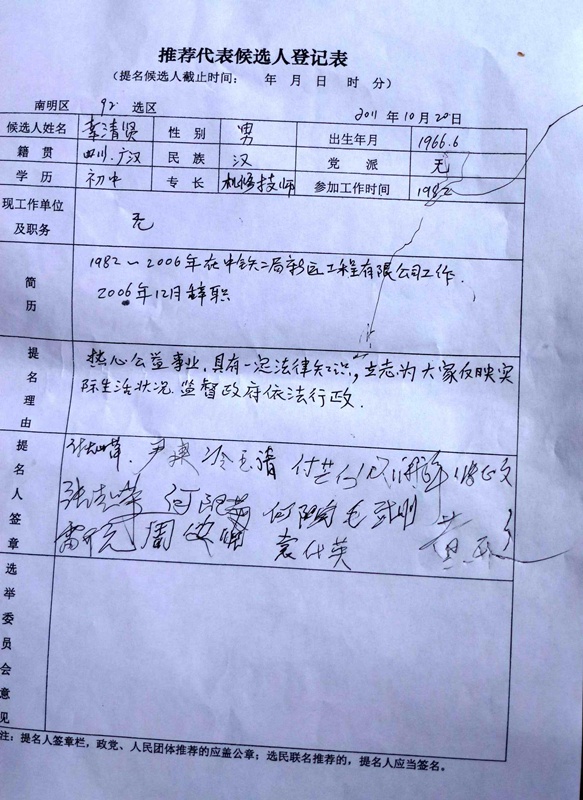 推荐代表候选人登记表
（提名候选人截止时间： 年 月 日 时 分）
南明区 92 选区 2011 年 10 月 20 日
候选人姓名 李清贤 性 别 男 出生年月 1966.6
籍 贯 四川.广汉 民 族 汉 党 派 无
学 历 初中 专 长 机修技师 参加工作时间 1982
现工作单位及职务 无
简历
1982～2006年在中铁二局新运工程有限公司工作.
2006年12月辞职
提名理由
热心公益事业,具有一定法律知识,立志为大家反映实
际生活状况.监督政府依法行政.
提名人签章
尹
周 袁仕英 黄
选举委员会意见
注：提名人签章栏，政党、人民团体推荐的应盖公章；选民联名推荐的，提名人应当签名。